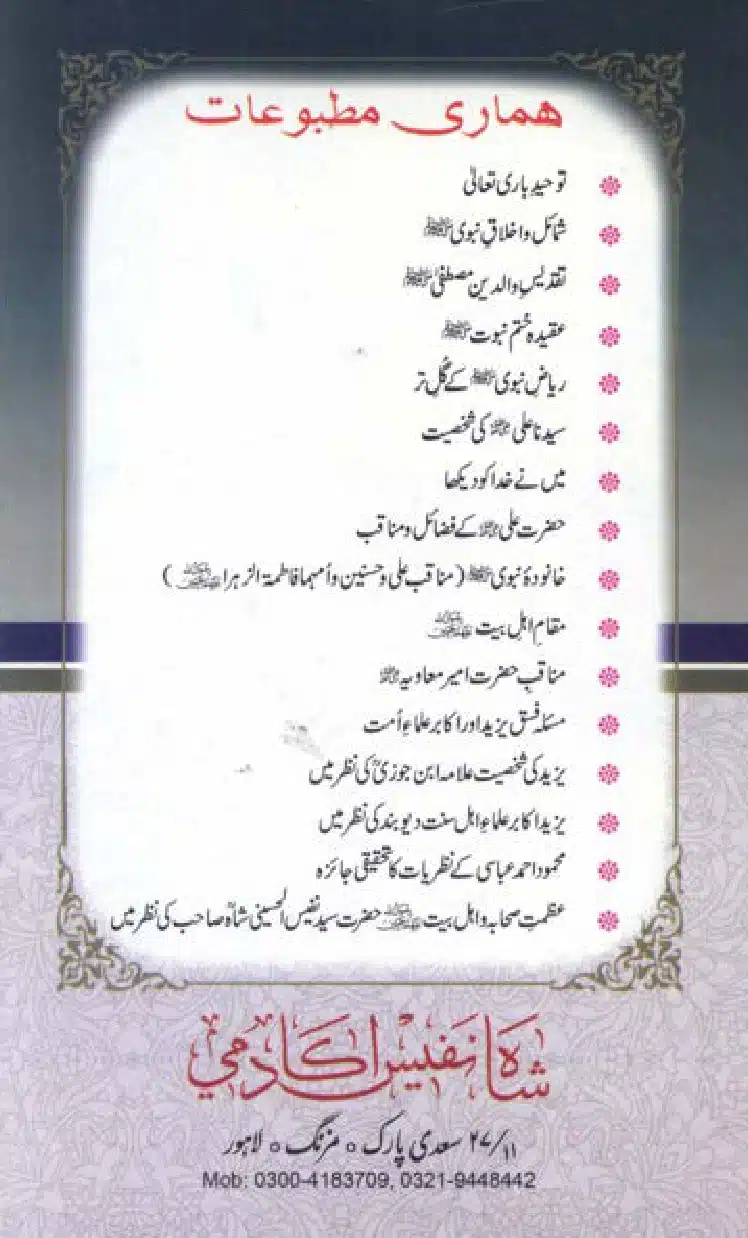 ھماری مطبوعات
توحیدِ باری تعالیٰ
شمائل و اخلاقِ نبوی ﷺ
تقدیسِ والدین مصطفیٰ ﷺ
عقیدہ ختم نبوت ﷺ
ریاضِ نبوی ﷺ کے گُلِ تر
سیدنا علی رضی اللہ عنہ کی شخصیت
میں نے خدا کو دیکھا
حضرت علی رضی اللہ عنہ کے فضائل و مناقب
خانودۂ نبوی ﷺ (مناقب علی و حسنین و أمہما فاطمۃ الزہرا رضی اللہ عنہم)
مقامِ اہلِ بیت رضی اللہ عنہم
مناقبِ حضرت امیر معاویہ رضی اللہ عنہ
مسئلہ فسق یزید اور اکابر علماءِ اُمت
یزید کی شخصیت علامہ ابن جوزیؒ کی نظر میں
یزید اکابر علماءِ اہل سنت دیوبند کی نظر میں
محمود احمد عباسی کے نظریات کا تحقیقی جائزہ
عظمتِ صحابہ و اہل بیت رضی اللہ عنہم حضرت سید نفیس الحسینی شاہؒ صاحب کی نظر میں
شاہ نفیس اکادمی
۲۷/۱۱ سعدی پارک ٥ مزنگ ٥ لاہور
Mob: 0300-4183709, 0321-9448442